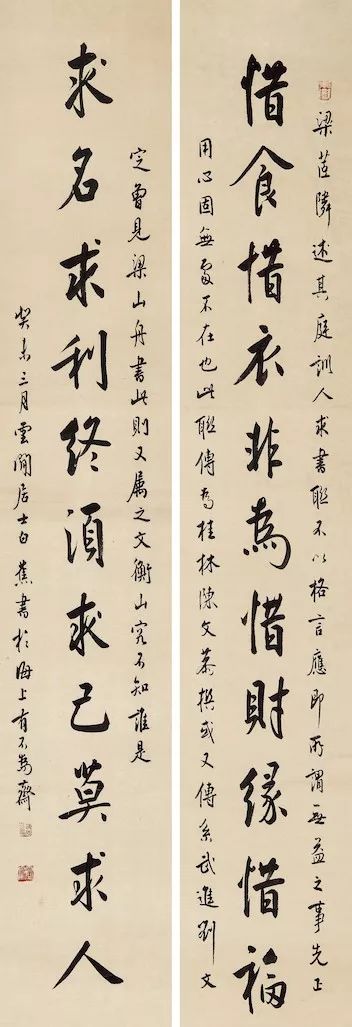 梁茝隣述其庭訓人求書聯不以格言應即所謂無益之事先正
惜食惜衣非為惜財緣惜福
用心固無處不在也此聯傳為桂林陳文恭撰或又傳系武進劉文
定曾見梁山舟書此則又属之文衡山究不知誰是
求名求利終須求己莫求人
癸未三月雲間居士白蕉書於海上有不為齋